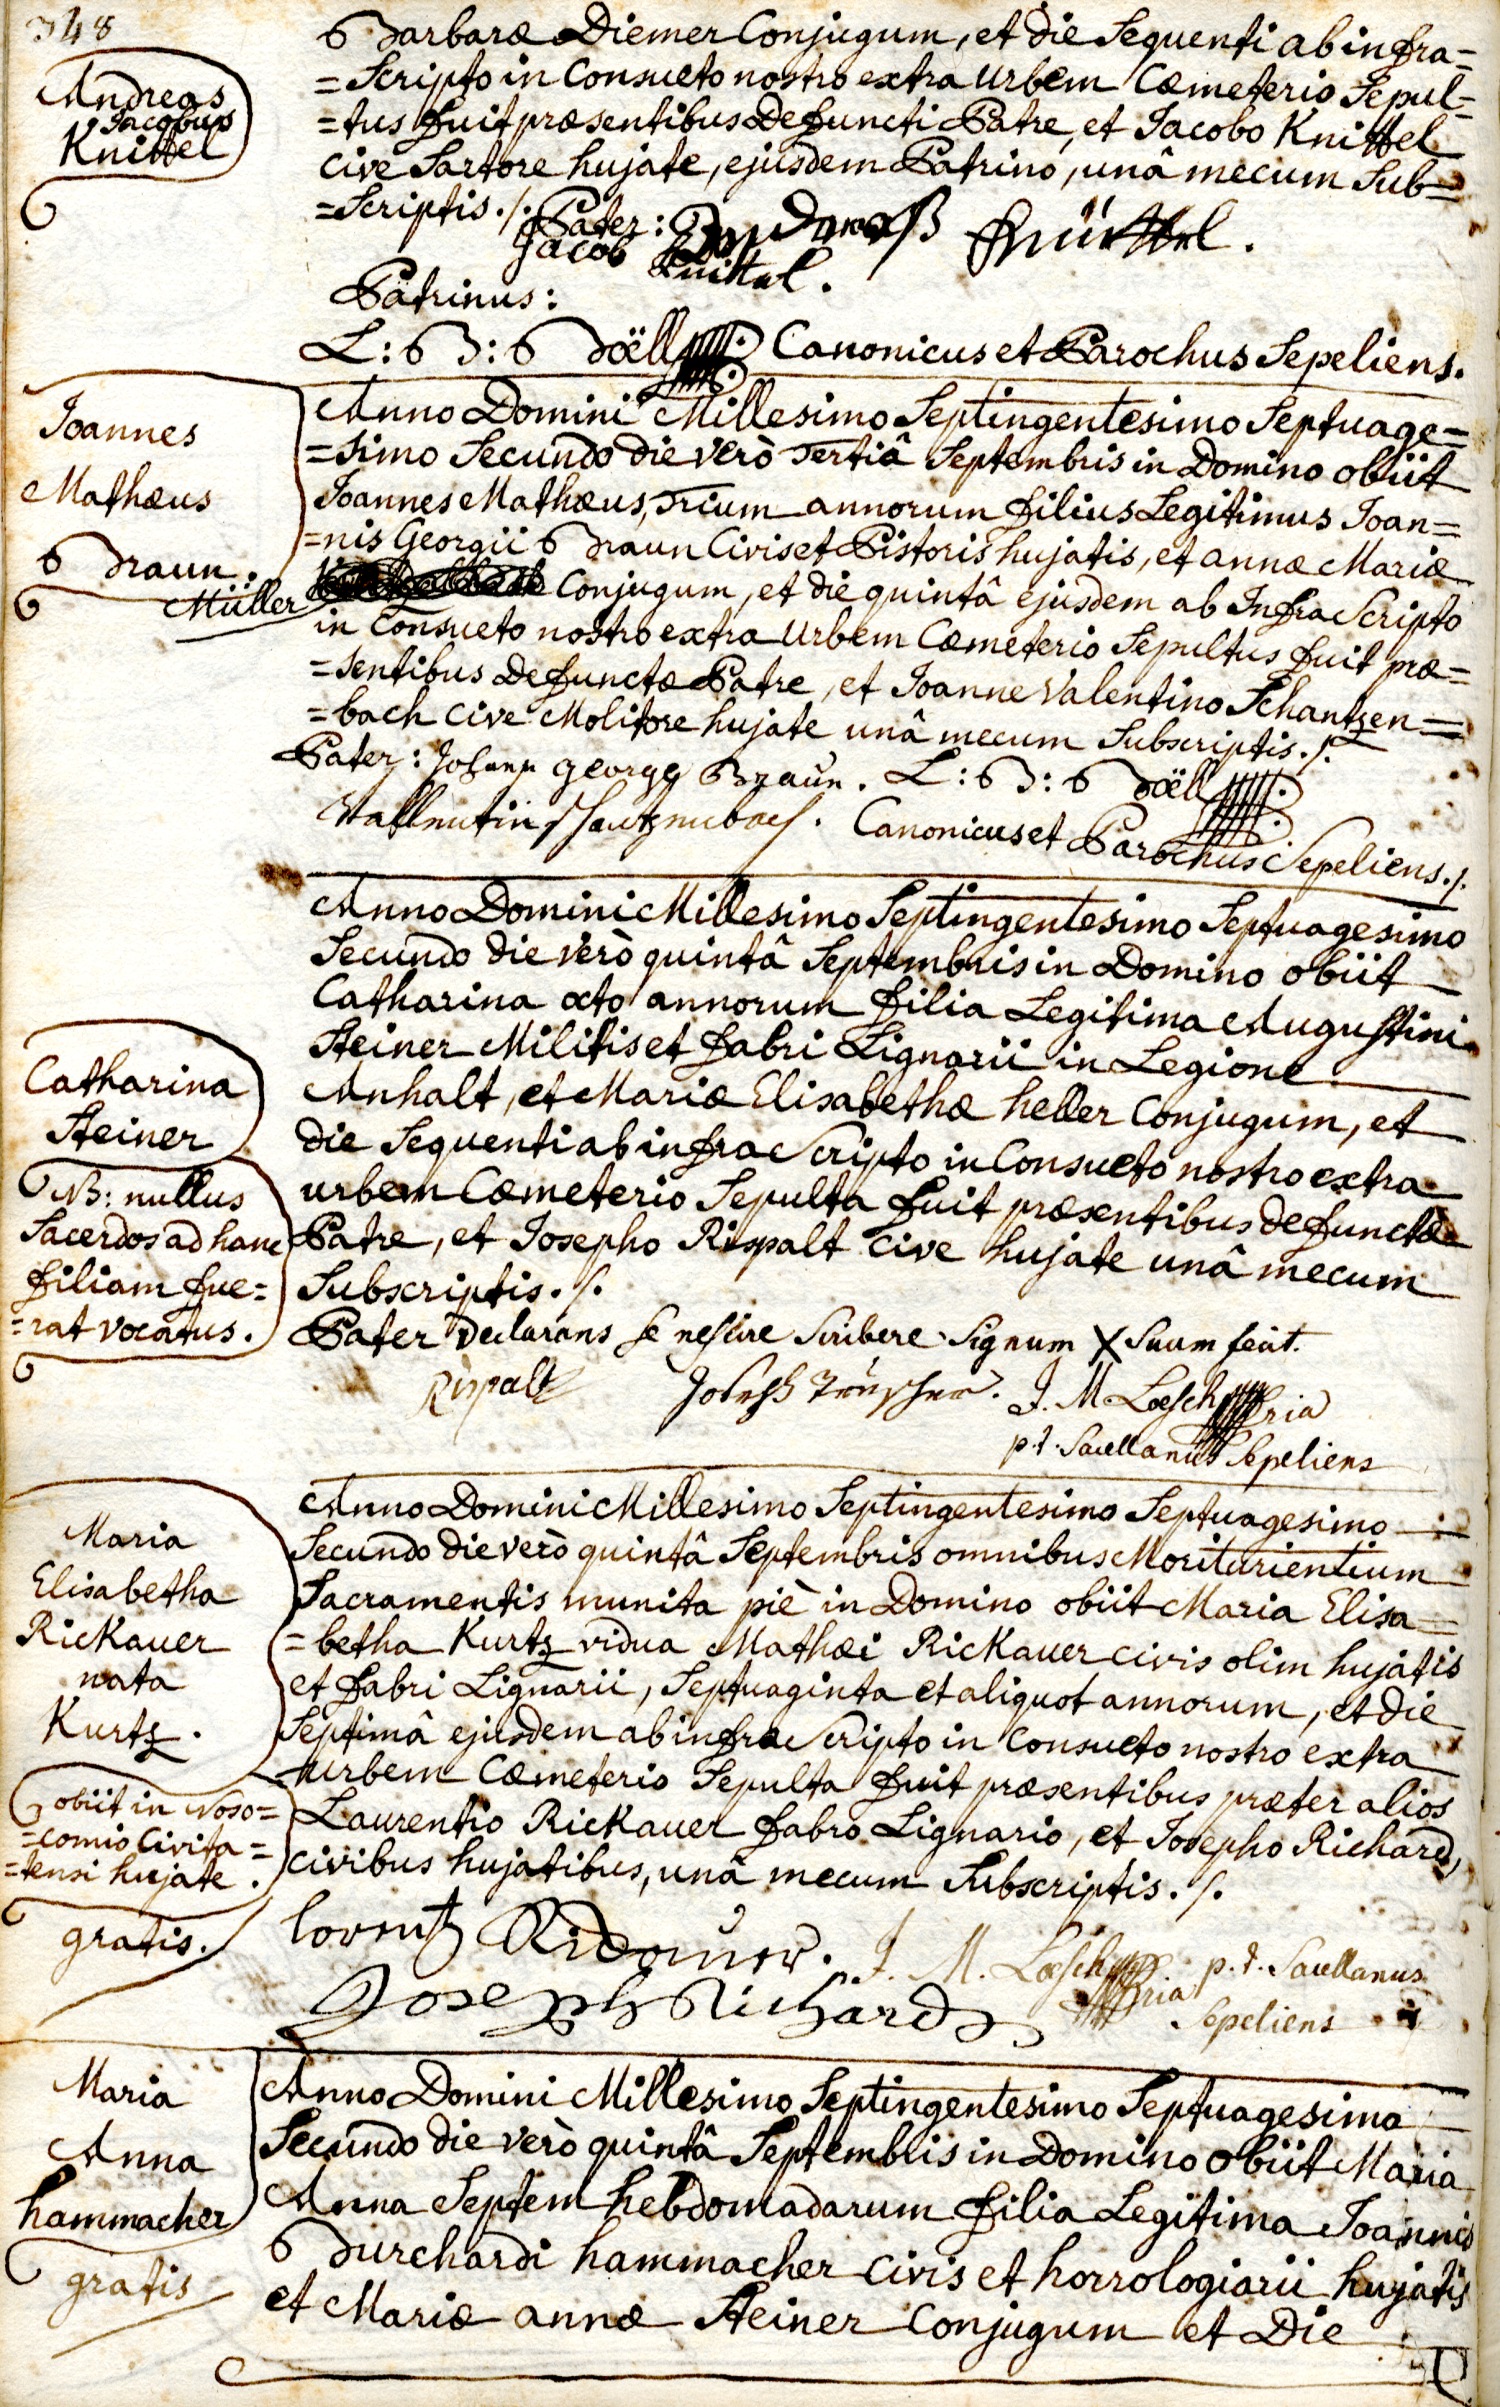 348
Andreas
Jacobus
Knittel
Barbaræ Diemer Conjugum, et die Sequenti ab infra=
=Scripto in Consueto nostro extra Urbem Cæmeterio Sepul=
=tus fuit præsentibus Defuncti Patre, et Jacobo Knittel
Cive Sartore hujate, ejusdem Patrino, unâ mecum Sub=
=Scriptis ./.
Pater:
Jacob Knittel.
Patrinus:
L: B: Boëll Canonicus et Parochus Sepeliens.
Joannes
Mathæus
Braun.
Müller
Anno Domini Millesimo Septingentesimo Septuage=
=simo Secundo die verò tertiâ Septembris in Domino obiit
Joannes Mathæus, trium annorum filius Legitimus Joan=
=nis Georgii Braun Civis et Pistoris hujatis, et annæ Mariæ
Conjugum, et die quintâ ejusdem ab Infra Scripto
in Consueto nostro extra Urbem Cæmeterio Sepultus fuit præ=
=sentibus Defunctæ Patre, et Joanne Valentino Schantzen=
=bach Cive Molitore hujate unâ mecum Subscriptis ./.
Pater: Johann georgg Braun. L: B: Boëll
Vallentin schantzenbach. Canonicus et Parochus Sepeliens ./.
Catharina
Steiner
NB: nullus
Sacerdos ad hanc
filiam fue=
=rat vocatus.
Anno Domini Millesimo Septingentesimo Septuagesimo
Secundo die verò quintâ Septembris in Domino obiit
Catharina octo annorum filia Legitima Augustini
Steiner Militis et fabri Lignarii in Legione
Anhalt, et Mariæ Elisabethæ heller Conjugum, et
die Sequenti ab infra Scripto in Consueto nostro extra
urbem Cæmeterio Sepulta fuit præsentibus defunctæ
Patre, et Josepho Rispalt Cive hujate unâ mecum
Subscriptis ./.
Pater declarans se nescire Scribere Signum X Suum fecit.
Rispalt J. M Loesch
p. t. Sacellanus Sepeliens
Maria
Elisabetha
Rickauer
nata
Kurtz.
obiit in Noso=
=comio Civita=
=tensi hujate.
gratis.
Anno Domini Millesimo Septingentesimo Septuagesimo
Secundo die verò quintâ Septembris omnibus Moriturientium
Sacramentis munita piè in Domino obiit Maria Elisa=
=betha Kurtz vidua Mathæi Rickauer civis olim hujatis
et fabri Lignarii, Septuaginta et aliquot annorum, et die
Septimâ ejusdem ab infra Scripto in Consueto nostro extra
urbem Cæmeterio Sepulta fuit præsentibus præter alios
Laurentio Rickauer fabro Lignario, et Josepho Richard,
civibus hujatibus, unâ mecum Subscriptis ./.
lorentz J. M. Loesch p. t. Sacellanus
Joseph Richard Sepeliens
Maria
Anna
hammacher
gratis
Anno Domini Millesimo Septingentesimo Septuagesimo
Secundo die verò quintâ Septembris in Domino obiit Maria
Anna Septem hebdomadarum filia Legitima Joannis
Burchardi hammacher Civis et horrologiarii hujatis
et Mariæ annæ Steiner Conjugum et Die